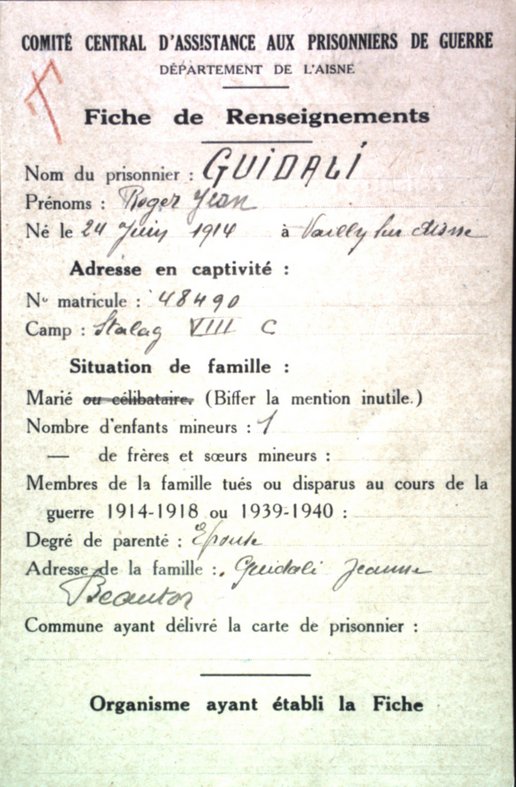 COMITÉ CENTRAL D'ASSISTANCE AUX PRISONNIERS DE GUERRE
DÉPARTEMENT DE L'AISNE
Fiche de Renseignements
Nom du prisonnier : GUIDALI
Prénoms : Roger Jean
Né le 24 Juin 1914 à Vailly sur Aisne
Adresse en captivité :
No matricule : 48490
Camp : Stalag VIII C
Situation de famille :
Marié ou célibataire. (Biffer la mention inutile.)
Nombre d'enfants mineurs : 1
— de frères et sœurs mineurs :
Membres de la famille tués ou disparus au cours de la
guerre 1914-1918 ou 1939-1940 :
Degré de parenté : Epouse
Adresse de la famille : Guidali Jeanne
Beautor
Commune ayant délivré la carte de prisonnier :
Organisme ayant établi la Fiche